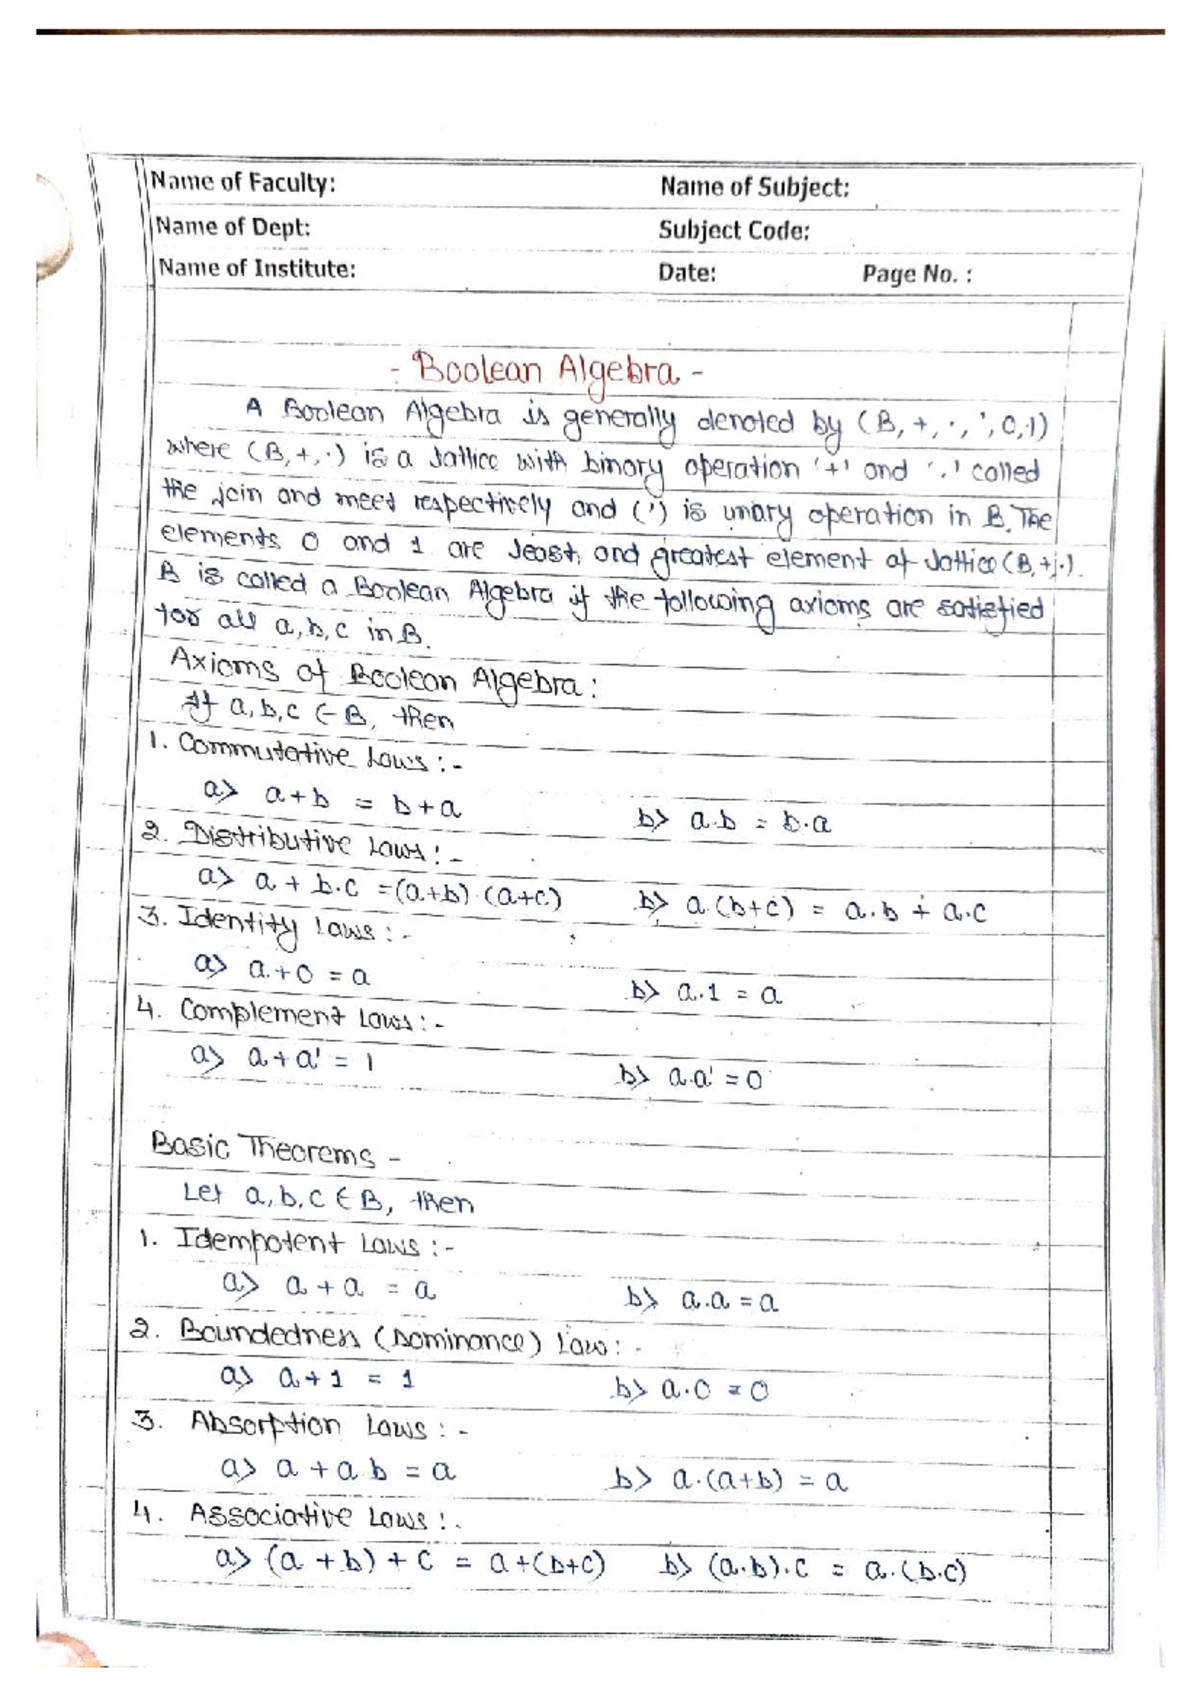 Name of Faculty: Name of Subject:
Name of Dept: Subject Code:
Name of Institute: Date: Page No. :
- Boolean Algebra -
A Boolean Algebra is generally denoted by (B, +, ·, ', 0, 1)
where (B, +, ·) is a lattice with binary operation '+' and '·' called
the join and meet respectively and (') is unary operation in B. The
elements 0 and 1 are least and greatest element of lattice (B, +, ·).
B is called a Boolean Algebra if the following axioms are satisfied
for all a, b, c in B.
Axioms of Boolean Algebra :
If a, b, c ∈ B, then
1. Commutative Laws :-
a> a + b = b + a b> a·b = b·a
2. Distributive Laws :-
a> a + b·c = (a+b)·(a+c) b> a·(b+c) = a·b + a·c
3. Identity Laws :-
a> a + 0 = a b> a·1 = a
4. Complement Laws :-
a> a + a' = 1 b> a·a' = 0
Basic Theorems -
Let a, b, c ∈ B, then
1. Idempotent Laws :-
a> a + a = a b> a·a = a
2. Boundedness (Dominance) Law: -
a> a + 1 = 1 b> a·0 = 0
3. Absorption Laws : -
a> a + a·b = a b> a·(a+b) = a
4. Associative Laws :-
a> (a + b) + c = a + (b+c) b> (a·b)·c = a·(b·c)